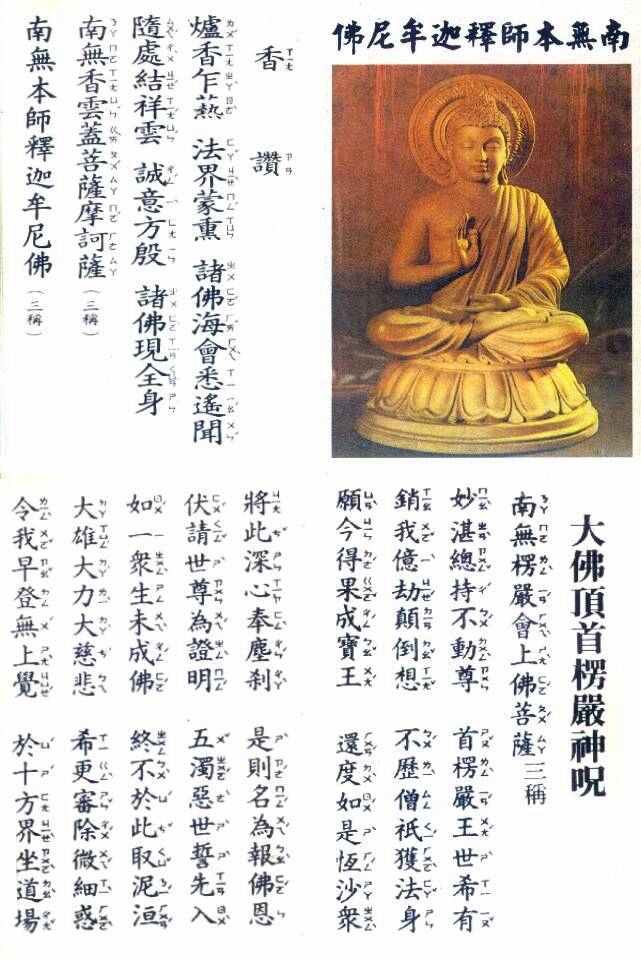 南無本師釋迦牟尼佛
香讚
爐香乍爇 法界蒙熏 諸佛海會悉遙聞
隨處結祥雲 誠意方殷 諸佛現全身
南無香雲蓋菩薩摩訶薩(三稱)
南無本師釋迦牟尼佛(三稱)
大佛頂首楞嚴神呪
南無楞嚴會上佛菩薩三稱
妙湛總持不動尊 首楞嚴王世希有
銷我億劫顛倒想 不歷僧祇獲法身
願今得果成寶王 還度如是恆沙衆
將此深心奉塵刹 是則名為報佛恩
伏請世尊為證明 五濁惡世誓先入
如一衆生未成佛 終不於此取泥洹
大雄大力大慈悲 希更審除微細惑
令我早登無上覺 於十方界坐道場